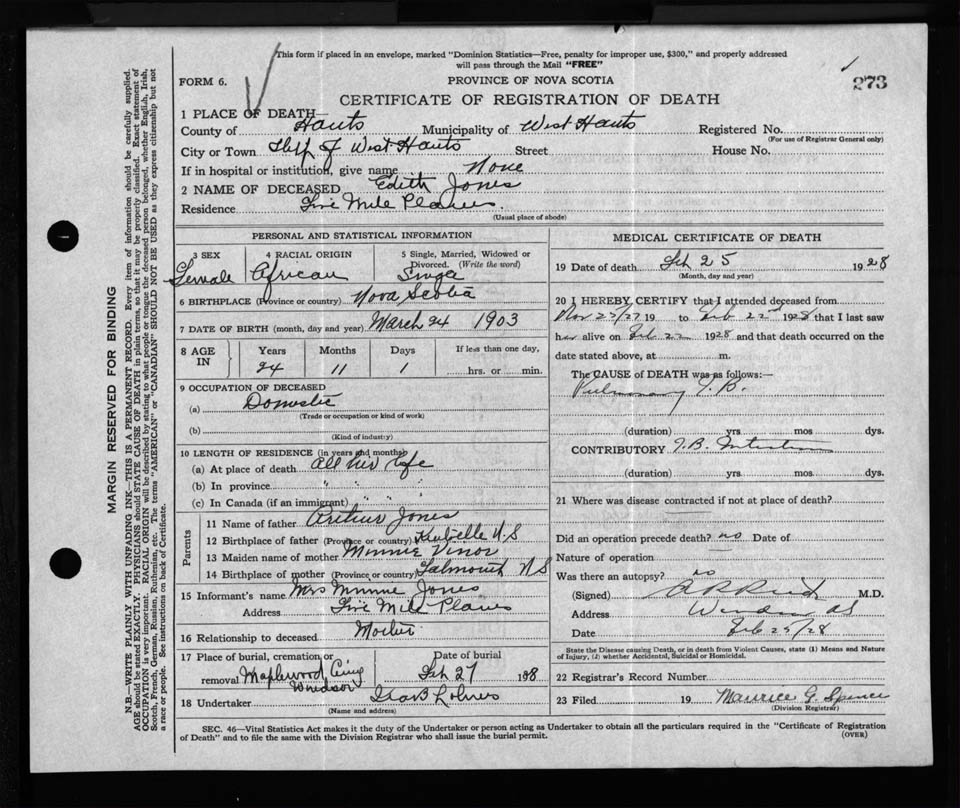 This form if placed in an envelope, marked "Dominion Statistics—Free, penalty for improper use, $300," and properly addressed
will pass through the Mail "FREE"
FORM 6.
PROVINCE OF NOVA SCOTIA
273
CERTIFICATE OF REGISTRATION OF DEATH
1 PLACE OF DEATH
County of Hants Municipality of West Hants Registered No.
(For use of Registrar General only)
City or Town of West Hants Street House No.
If in hospital or institution, give name None
2 NAME OF DECEASED Edith Jones
Residence Five Mile Planes
(Usual place of abode)
PERSONAL AND STATISTICAL INFORMATION
3 SEX 4 RACIAL ORIGIN 5 Single, Married, Widowed or
Divorced. (Write the word)
Female African Single
6 BIRTHPLACE (Province or country) Nova Scotia
7 DATE OF BIRTH (month, day and year) March 24 1903
8 AGE IN Years Months Days If less than one day,
24 11 1 hrs. or min.
9 OCCUPATION OF DECEASED
(a) Domestic
(Trade or occupation or kind of work)
(b)
(Kind of industry)
10 LENGTH OF RESIDENCE (in years and months)
(a) At place of death all her life
(b) In province " " "
(c) In Canada (if an immigrant) " " "
Parents
11 Name of father Arthur Jones
12 Birthplace of father (Province or country) N S
13 Maiden name of mother Minnie
14 Birthplace of mother (Province or country) Falmouth N S
15 Informant's name Mrs Minnie Jones
Address Five Mile Planes
16 Relationship to deceased Mother
17 Place of burial, cremation or Date of burial
removal Maplewood Windsor Feb 27 1928
18 Undertaker
(Name and address)
MEDICAL CERTIFICATE OF DEATH
19 Date of death Feb 25 1928
(Month, day and year)
20 I HEREBY CERTIFY that I attended deceased from
Nov 19 to Feb 22nd 1928 that I last saw
her alive on Feb 22 1928 and that death occurred on the
date stated above, at m.
The CAUSE of DEATH was as follows:—
Pulmonary T.B.
(duration) yrs mos dys.
CONTRIBUTORY T.B.
(duration) yrs mos dys.
21 Where was disease contracted if not at place of death?
Did an operation precede death? no Date of
Nature of operation
Was there an autopsy? no
(Signed) M.D.
Address Windsor NS
Date Feb /28
State the Disease causing Death, or in death from Violent Causes, state (1) Means and Nature
of Injury, (2) whether Accidental, Suicidal or Homicidal.
22 Registrar's Record Number
23 Filed 19 Maurice G. Spence
(Division Registrar)
SEC. 46—Vital Statistics Act makes it the duty of the Undertaker or person acting as Undertaker to obtain all the particulars required in the "Certificate of Registration
of Death" and to file the same with the Division Registrar who shall issue the burial permit.
(OVER)
MARGIN RESERVED FOR BINDING
N.B.—WRITE PLAINLY WITH UNFADING INK—THIS IS A PERMANENT RECORD. Every item of information should be carefully supplied.
AGE should be stated EXACTLY. PHYSICIANS should STATE CAUSE OF DEATH in plain terms, so that it may be properly classified. Exact statement of
OCCUPATION is very important. RACIAL ORIGIN will be described by stating to what people or tongue the deceased person belonged, whether English, Irish,
Scotch, French, German, Russian, Ruthenian, etc. The terms "AMERICAN" or "CANADIAN" SHOULD NOT BE USED as they express citizenship but not
a race or people. See instructions on back of Certificate.